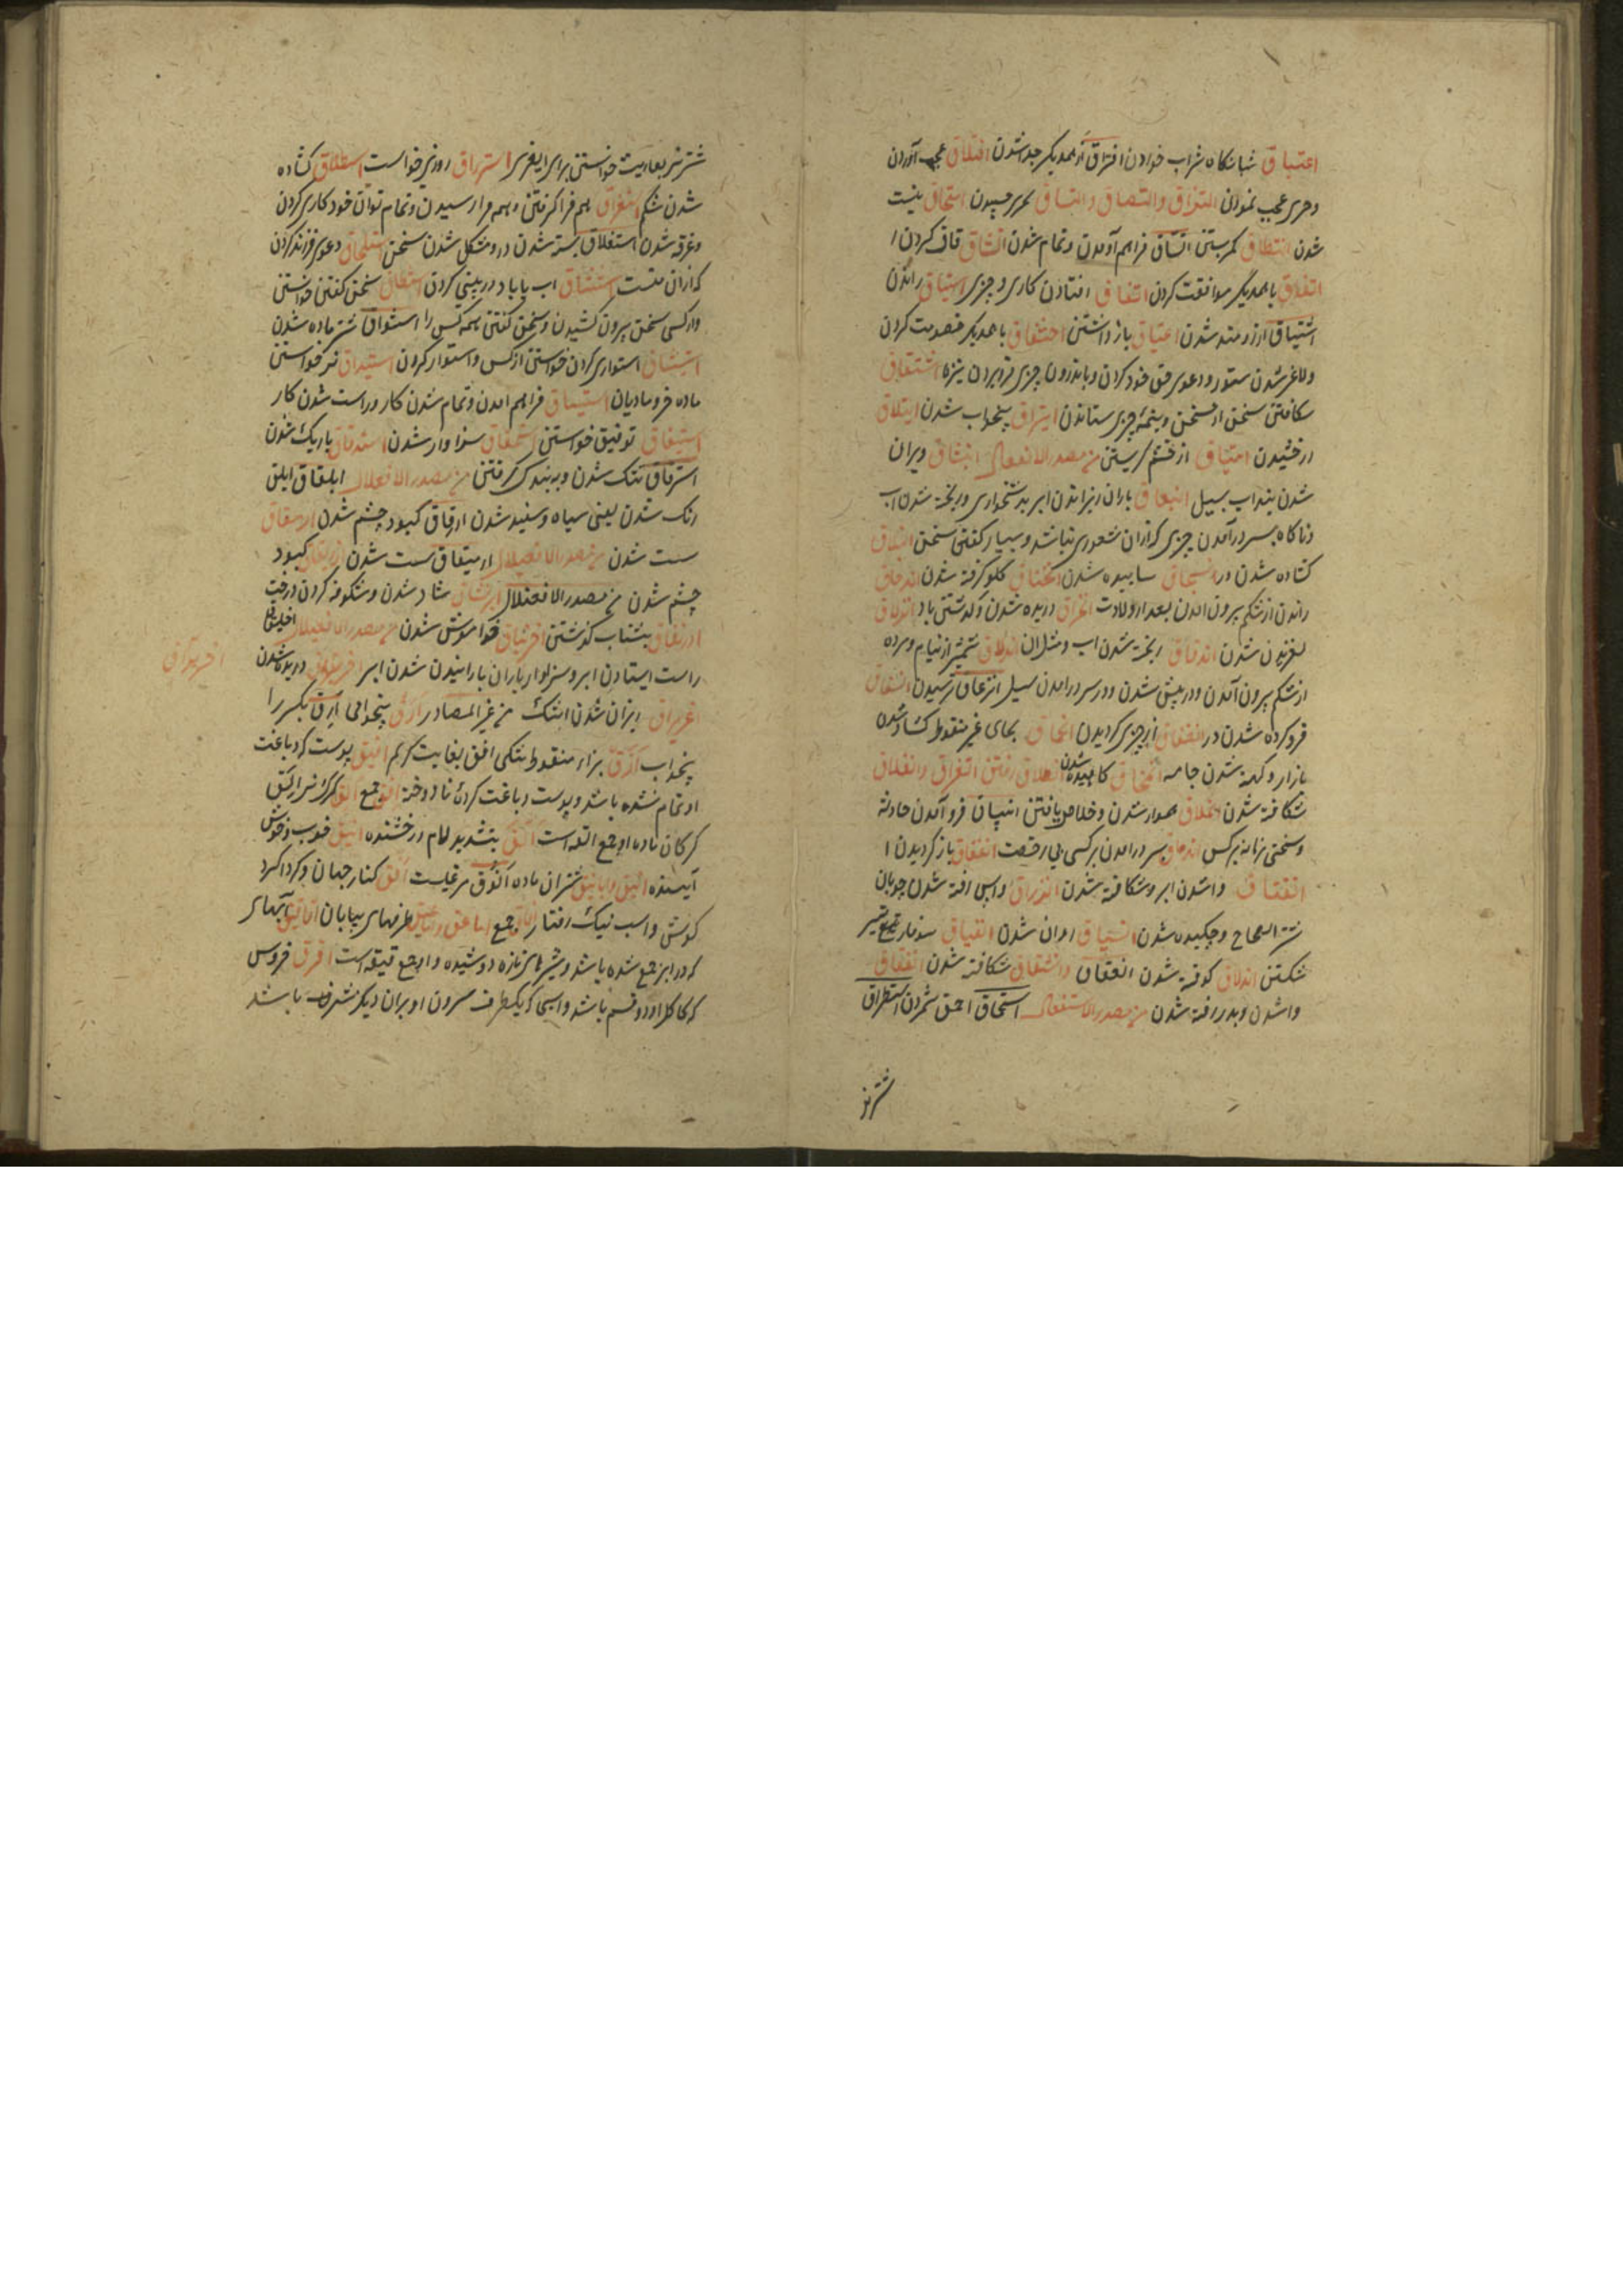 اغتباق شبانکاه شراب خوردن افتراق از همدیکر جدا شدن افتلاق عجب آوردن
وحری عجب نمودن التزاق والتصاق والتساق بچیزی چسپیدن امتحاق نیست
شدن انتطاق کمر بستن اتساق فراهم آمدن وتمام شدن انشاق قاف کردن ا
اتفاق با همدیکر موافقت کردن اتفاق افتادن کاری وچیزی استیاق راندن
اشتیاق ارزومند شدن اعتیاق باز داشتن احتقاق با همدیکر خصومت کردن
ولاغر شدن ستور ودعوی حق خود کردن وباندرون چیزی فرو بردن نیزه اشتقاق
شکافتن سخن از سخن ونیمه چیزی ستاندن ایتراق بیخواب شدن ایتلاق
درخشیدن امتیاق از خشم کریستن من مصدر الانفعال انبثاق ویران
شدن بند اب بسیل انبعاق باران ریزاندن ابر بدشخواری وریخته شدن اب
وناکاه بسر درآمدن چیزی که از ان شعوری نباشد وبسیار کفتن سخن
کشاده شدن در انسحاق ساییده شدن انخناق کلو کرفته شدن اندحاق
راندن از شکم بیرون امدن بعد از ولادت انخراق دریده شدن وکذشتن باد انزلاق
لغزیدن شدن اندفاق ریخته شدن اب ومثل ان اندلاق شمشیر از نیام
از شکم بیرون آمدن ودر پیش شدن ودر سر درامدن سیل انزعاق ترسیدن انسفاق
فرو کرده شدن در انفتاق از چیزی کردیدن انحاق بحای غیر منقوط کشاد شدن
بازار وکهنه شدن جامه انمحاق کاهیده شدن انطلاق رفتن انفراق وانفلاق
شکافته شدن انملاق هموار شدن وخلاص یافتن انبیاق فرو آمدن حادثه
وسختی زمانه بر کس اندماق بسر درامدن بر کسی بی رخصت انفقاق باز کردیدن ا
انعقاق واشدن ابر وشکافته شدن انذراق واپس افتد شدن چوبان
من الصحاح وچکیده شدن انسیاق روان شدن انفیاق سوفار تیر
شکستن اندقاق کوفته شدن انعقاق وانشقاق شکافته شدن انفقاق
واشدن وبدر رفته شدن من مصدر الاستفعال استحماق احمق شمردن استطراق
شتر نر
شتر نر بعاریت خواستن برای استرزاق روزی خواست استطلاق کشاده
شدن شکم استغراق بهم فرا کرفتن وبهم فرا رسیدن وتمام توان خود کاری کردن
وغرقه شدن استغلاق بسته شدن در ومشکل شدن سخن استلحاق دعوی فرزند کردن
که از ان تست استنشاق اب یا باد در بینی کردن استنطاق سخن کفتن خواستن
واز کسی سخن بیرون کشیدن وسخن کفتن همه کس را استنواق شتر ماده شدن
استیثاق استواری کردن خواستن از کس واستوار کردن استیداق نر خواستن
ماده خر ومادیان استیساق فراهم امدن وتمام شدن کار وراست شدن کار
استیفاق توفیق خواستن استحقاق سزاوار شدن استدقاق باریک شدن
استرقاق تنک شدن وببندکی کرفتن من مصدر الافعلال ابلقاق ابلق
رنک شدن یعنی سیاه وسفید شدن ازرقاق کبود چشم شدن
سست شدن من مصدر الافعیلال ارمیقاق سست شدن ازریقاق کبود
چشم شدن من مصدر الافعنلال ابرنشاق شاد شدن وشکوفه کردن درخت
ادرنفاق بشتاب کذشتن اخرنباق خواموش شدن من مصدر الافعیعال اخلیلاق
راست ایستادن ابر وسزاوار باران باراننیدن شدن ابر اخریراق دریده شدن
اغریراق ریزان شدن اشک من غیر المصادر ارق بیخوابی ارق بکسر را
بیخواب ازق بزاء منقوط تنکی افق بغایت کریم افیق پوست که دباغت
او تمام نشده باشد وپوست دباغت کرده نا دوخته افق جمع القه کرک نر
کرکان ماده او جمع القه است الق بتشدید لام درخشنده انیق خوب وخوش
آینده انیق وایانیق شتران ماده انوق مرغیست افق کنار جهان وکرداکرد
کوش واسب نیک رفتار افاق جمع اماعق واماعیق طرفهای بیابان افاقیق ابهای
که در ابر جمع شده باشد وشیرهای تازه دوشیده واو جمع فیقه است افرق خروس
که کاکل او دو قسم باشد واسپی که یکطرف سرون او بران دیکر مشرف باشد